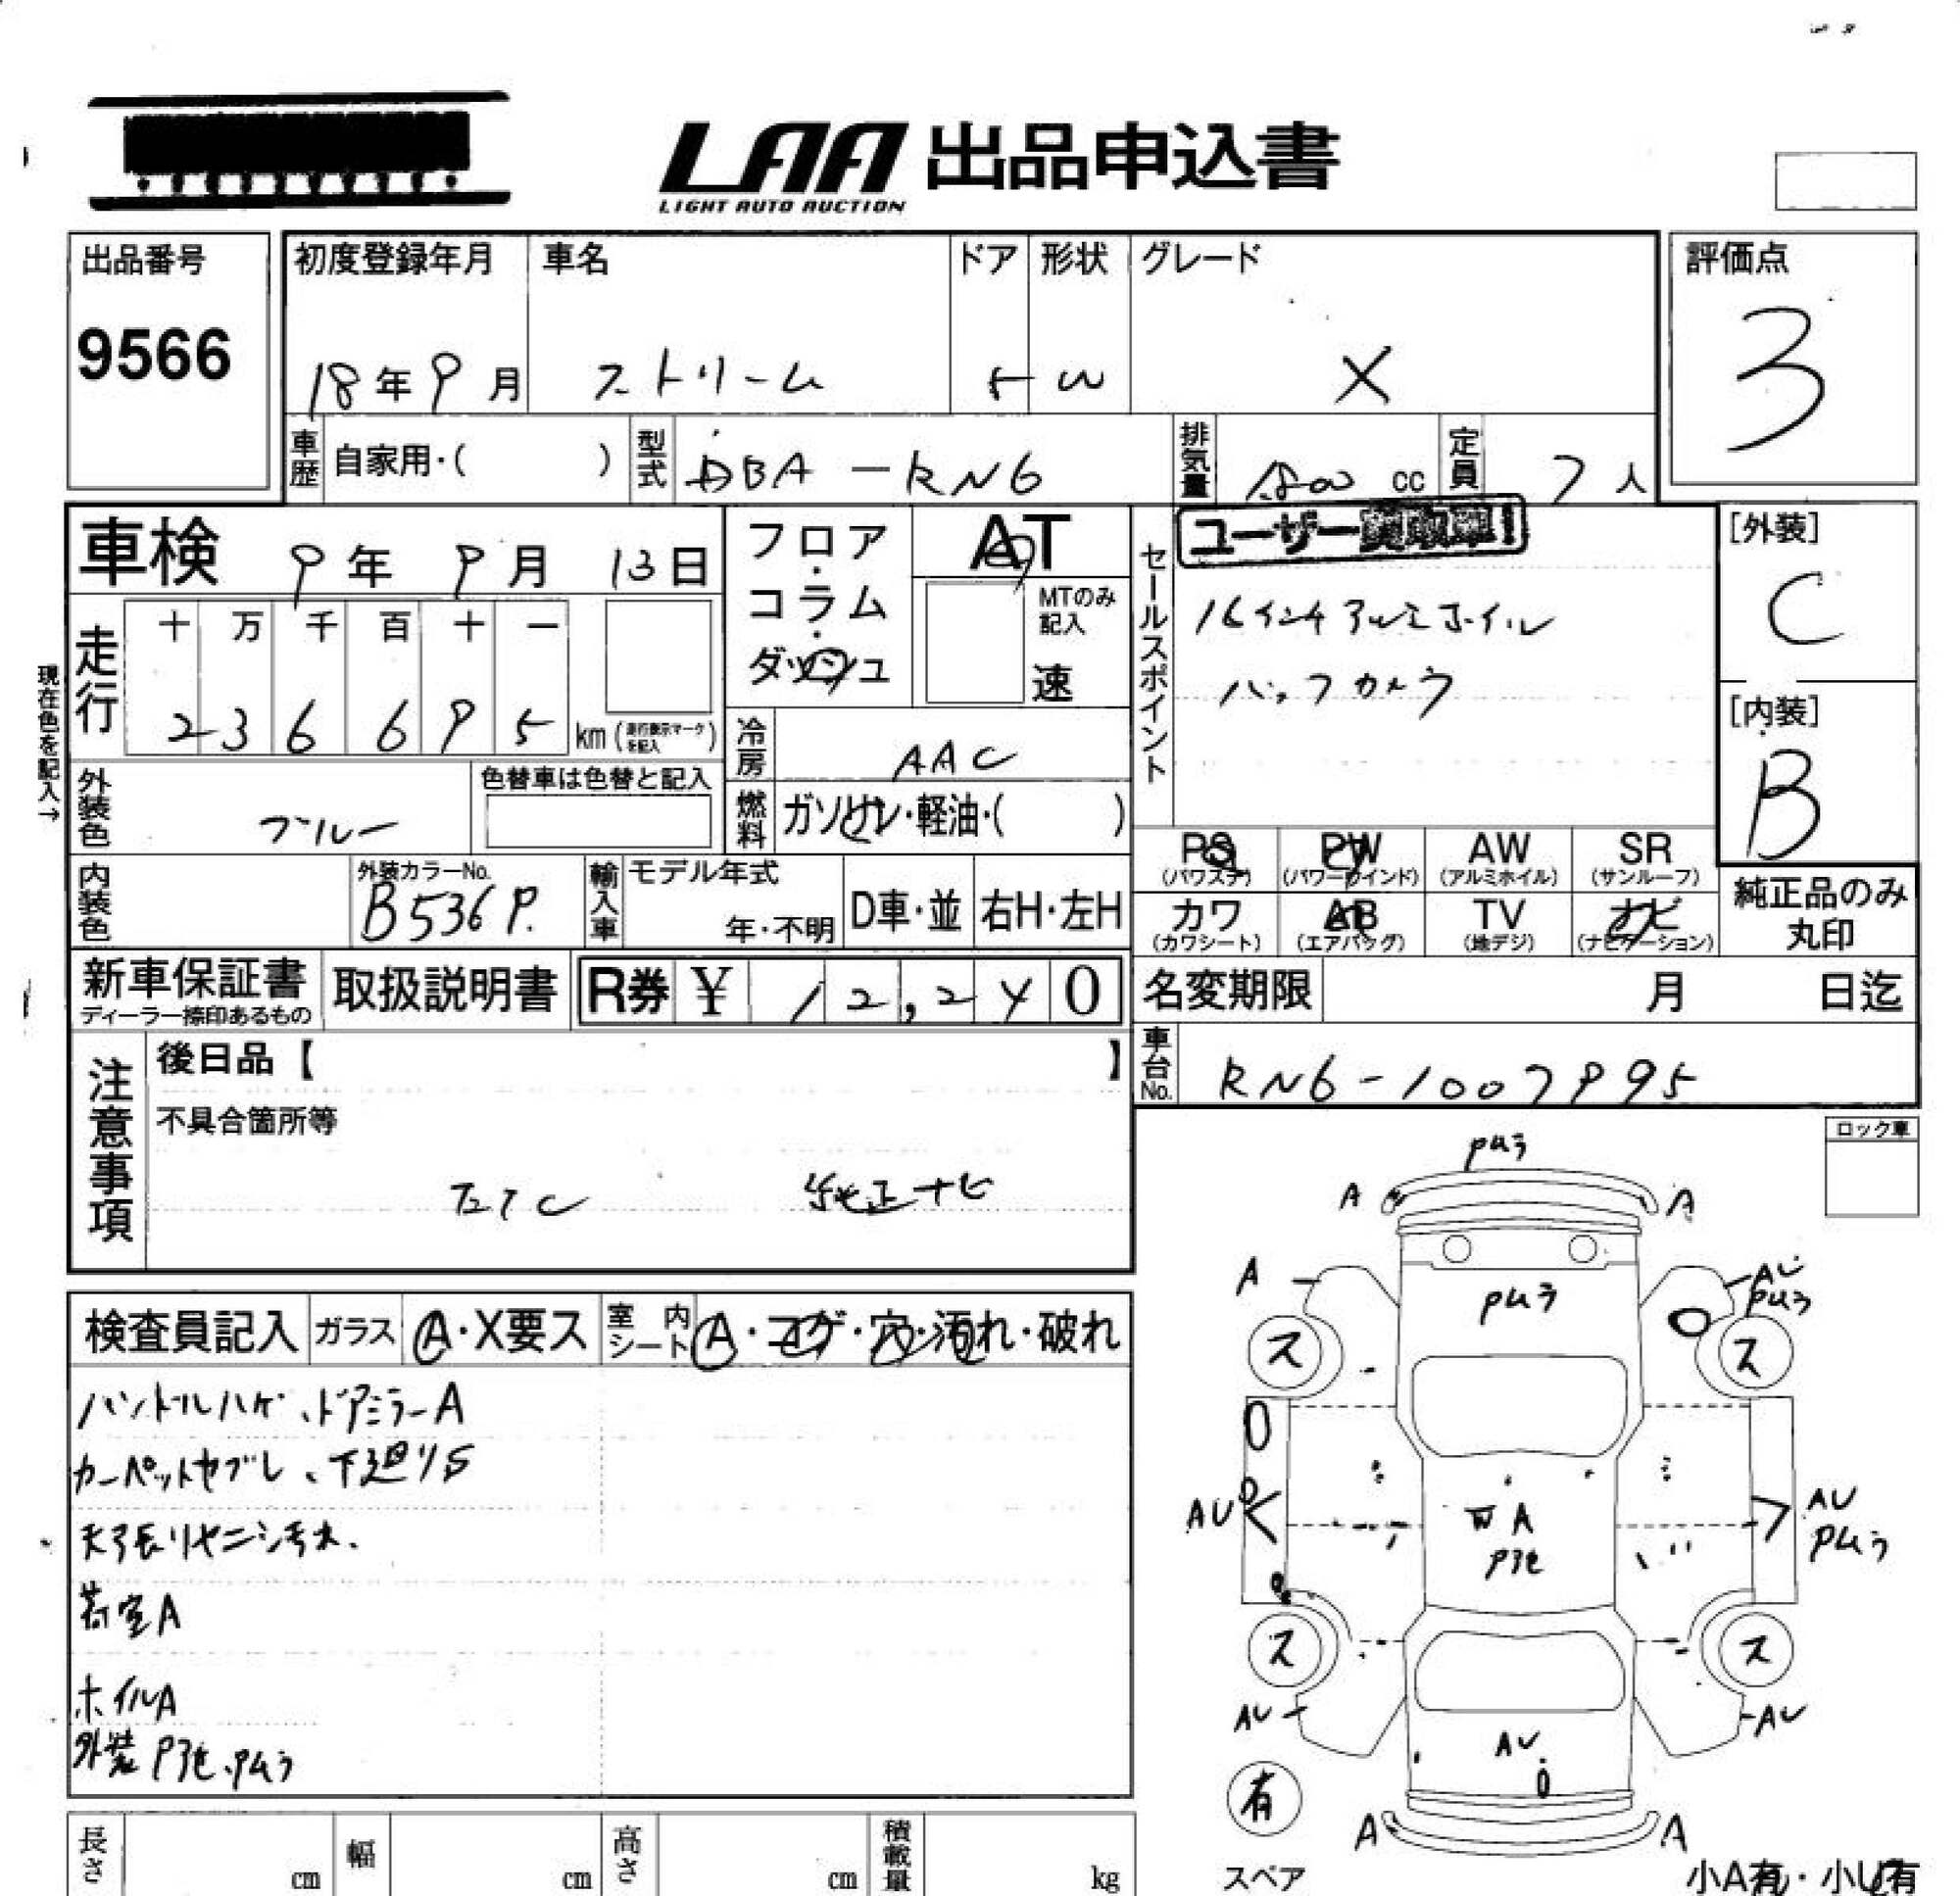 LAA 出品申込書
LIGHT AUTO AUCTION
出品番号
9566
初度登録年月
18年9月
車名
ストリーム
ドア
5
形状
W
グレード
X
評価点
3
車歴
自家用・( )
型式
DBA-RN6
排気量
1800 cc
定員
7人
車検
9年9月13日
フロア・コラム・ダッシュ
AT
MTのみ記入
速
セールスポイント
ユーザー買取車!
16インチアルミホイル
バックカメラ
[外装]
C
[内装]
B
現在色を記入→
走行
十 万 千 百 十 一
2 3 6 6 9 5
km (走行表示マークを記入)
外装色
ブルー
色替車は色替と記入
冷房
AAC
燃料
ガソリン・軽油・( )
内装色
外装カラーNo.
B536P.
輸入車
モデル年式
年・不明
D車・並
右H・左H
PS
(パワステ)
PW
(パワーウインド)
AW
(アルミホイル)
SR
(サンルーフ)
カワ
(カワシート)
AB
(エアバッグ)
TV
(地デジ)
ナビ
(ナビゲーション)
純正品のみ
丸印
新車保証書
ディーラー捺印あるもの
取扱説明書
R券 ¥12,240
名変期限
月 日迄
車台No.
RN6-1007995
注意事項
後日品【 】
不具合箇所等
純正ナビ
ロック車
検査員記入
ガラス
A・X要ス
室内シート
A・コゲ・穴・汚れ・破れ
ハンドルハゲ、ドアミラーA
カーペットヤブレ、下廻りS
天張リヤニシ汚れ.
荷室A
ホイルA
外装P
Pムラ
A
A
A
Pムラ
AU
Pムラ
ス
ス
AU
A
AU
Pムラ
ス
ス
AU
AU
AU
有
スペア
A
A
小A有・小U有
長さ
cm
幅
cm
高さ
cm
積載量
kg